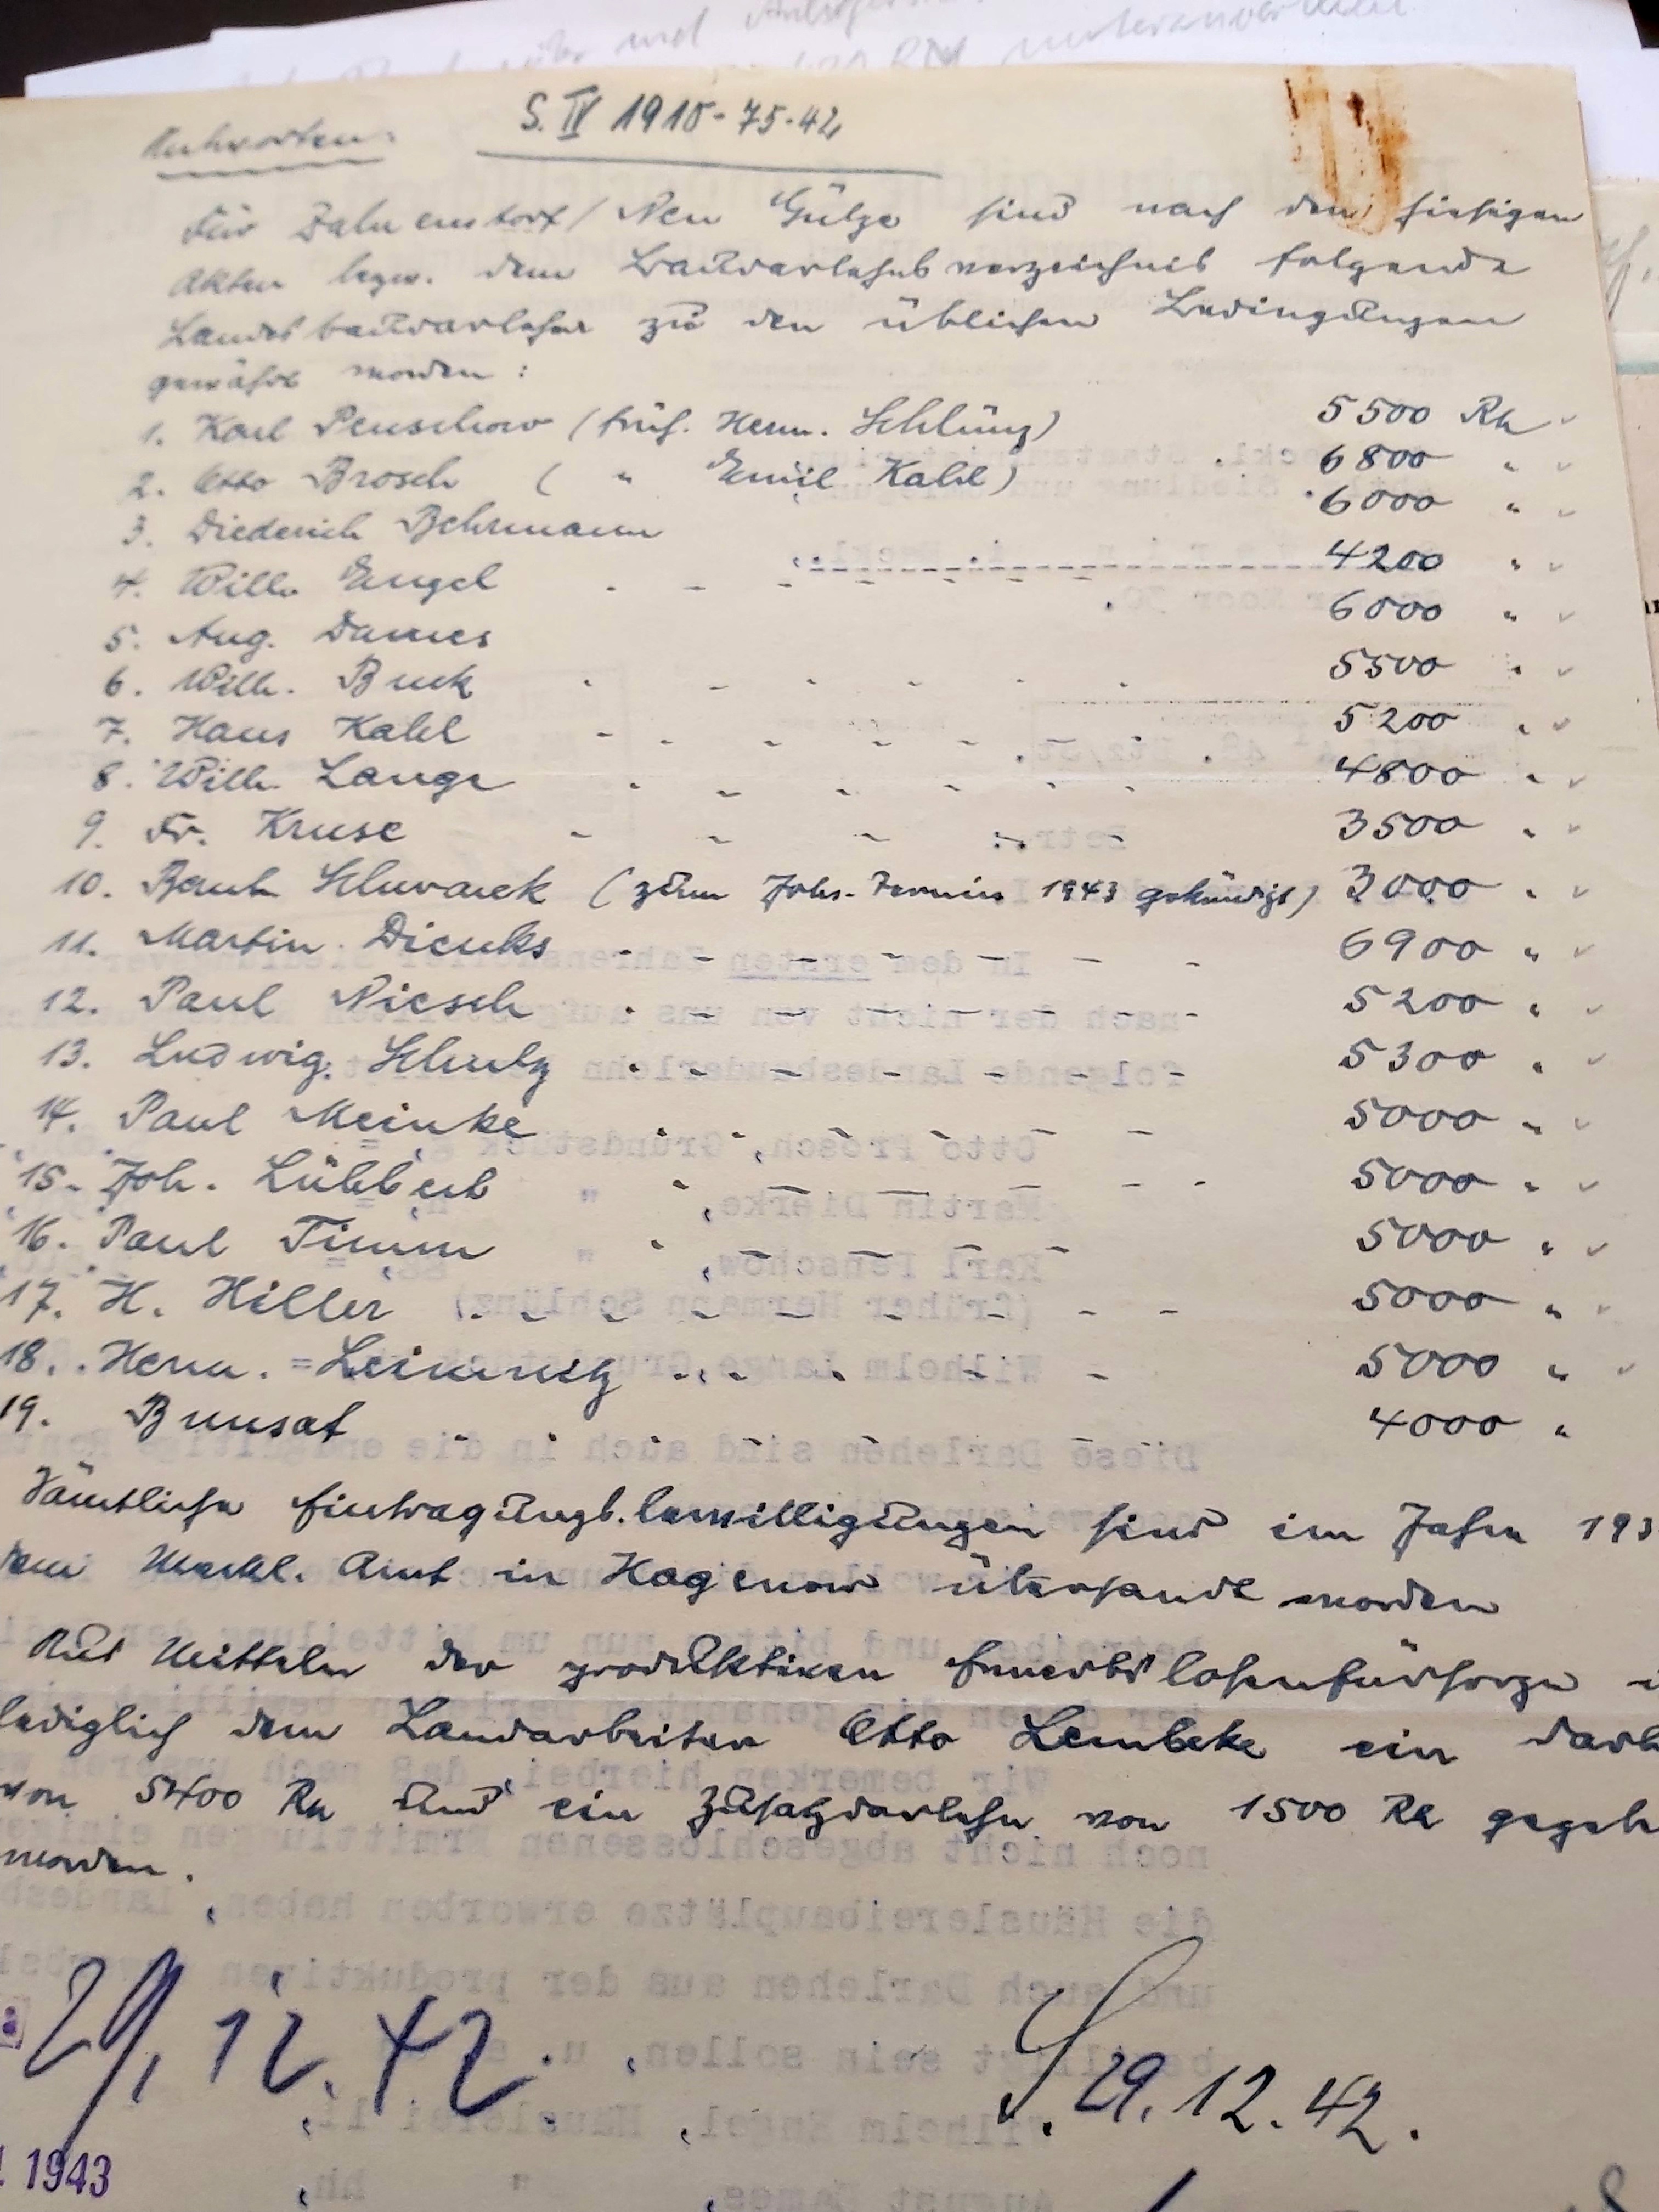 und
S. IV 1910-75-42
Antworten:
Für Dahmenstorf / Neu Gülze sind nach den hiesigen
Akten bezw. dem Baudarlehnsverzeichnis folgende
Landesbaudarlehen zu den üblichen Bedingungen
gewährt worden:
1. Karl Penschow (früh. Herm. Schlüng) 5500 RM
2. Otto Brosch ( " Emil Kahl) 6800 "
3. Diederich Behrmann 6000 "
4. Wilh. Engel - - - - - - 4200 "
5. Aug. Dames 6000 "
6. Wilh. Buck - - - - - - 5500 "
7. Hans Kahl - - - - - - 5200 "
8. Wilh. Lange - - - - - - 4800 "
9. Fr. Kruse - - - - 3500 "
10. Schwarck (zum Johs.-Termin 1943 gekündigt) 3000 "
11. Martin Dierks - - - - - - 6900 "
12. Paul Niesch - - - - - - 5200 "
13. Ludwig Schulz - - - - - - 5300 "
14. Paul Meinke - - - - - - 5000 "
15. Joh. Lübbert - - - - - - 5000 "
16. Paul Timm - - - - - 5000 "
17. H. Hiller - - - - - - - - 5000 "
18. Herm. Leimnitz - - - - - 5000 "
19. Bunsat - - - - - - - 4000 "
Sämtliche Eintragungsbewilligungen sind im Jahre 193
dem Meckl. Amt in Hagenow übersandt worden
Aus Mitteln der produktiven Erwerbslosenfürsorge
lediglich dem Landarbeiter Otto Lembcke ein Darl
von 5400 RM und ein Zusatzdarlehn von 1500 RM gegeb
worden.
29. 12. 42.
S. 29. 12. 42.
1943